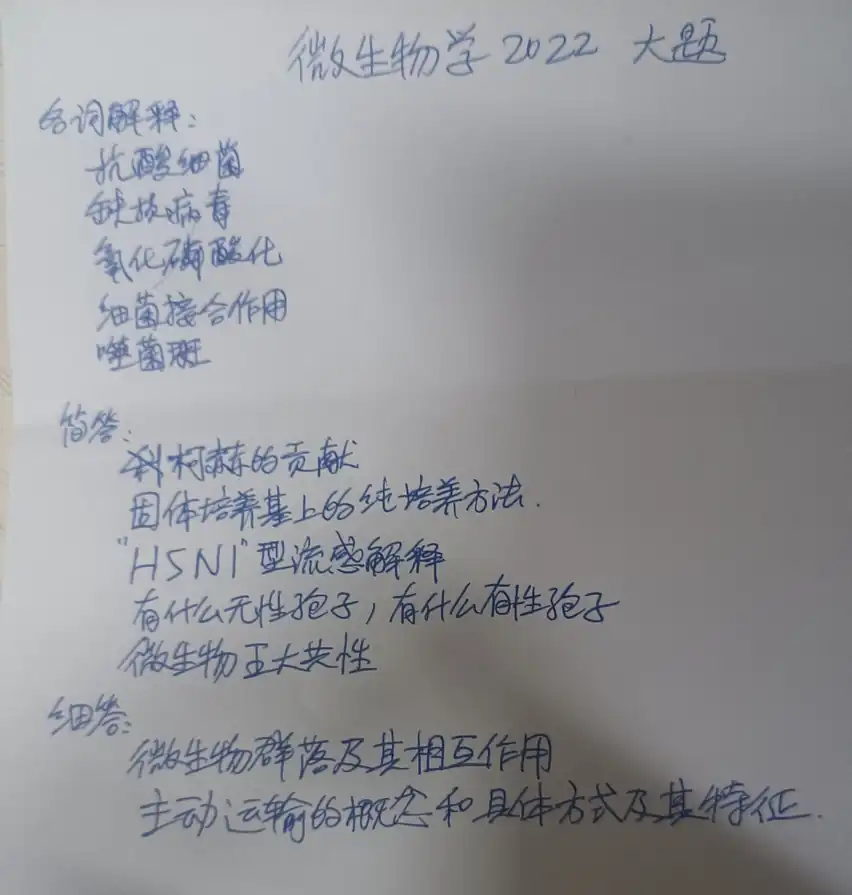 微生物学2022 大题
名词解释:
抗酸细菌
缺损病毒
氧化磷酸化
细菌接合作用
噬菌斑
简答:
柯赫的贡献
固体培养基上的纯培养方法.
"H5N1"型流感解释
有什么无性孢子,有什么有性孢子
微生物五大共性
细答:
微生物群落及其相互作用
主动运输的概念和具体方式及其特征.